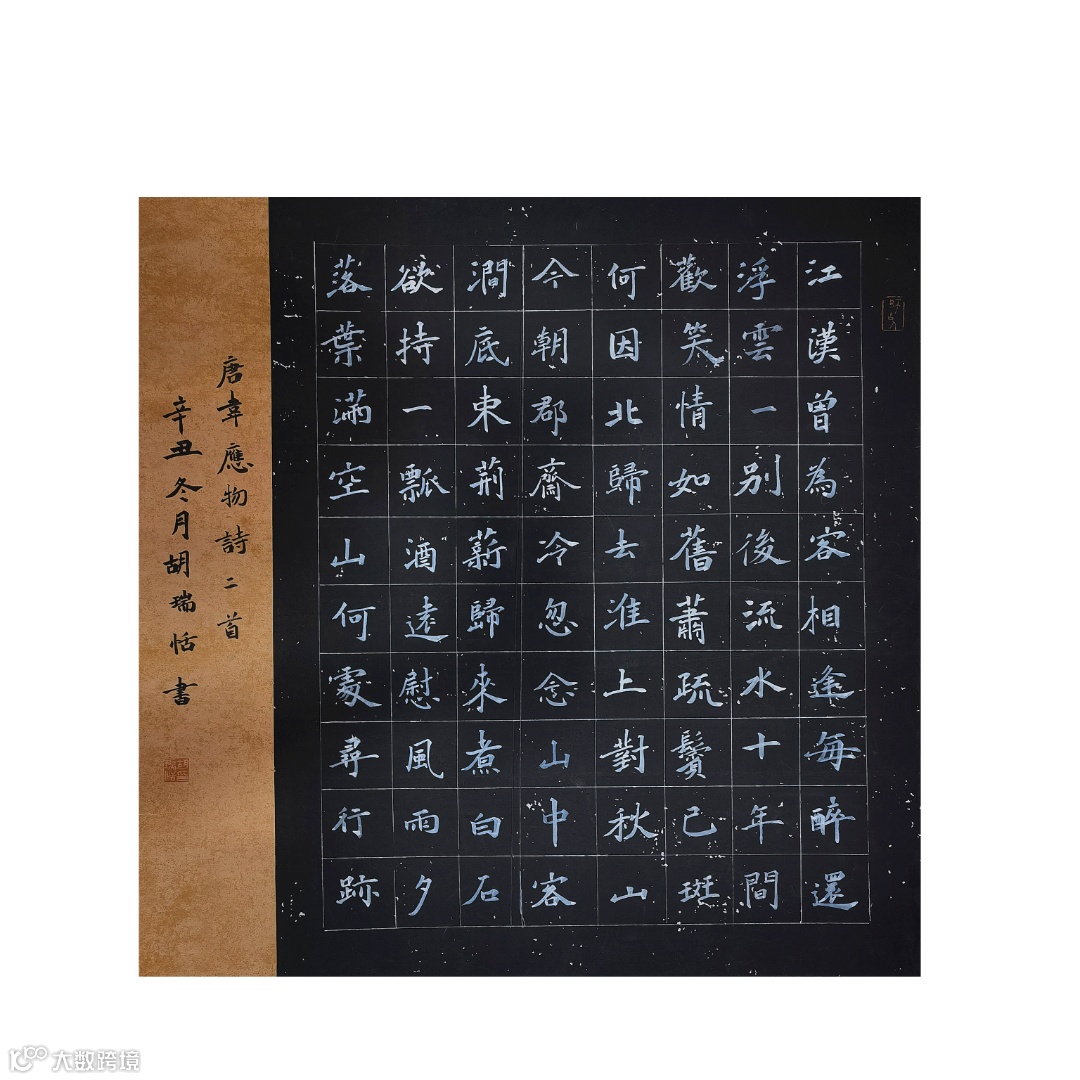 江漢曾為客相逢每醉還
浮雲一別後流水十年間
歡笑情如舊蕭疏鬢已斑
何因北歸去淮上對秋山
今朝郡齋冷忽念山中客
澗底束荊薪歸來煮白石
欲持一瓢酒遠慰風雨夕
落葉滿空山何處尋行跡
唐韋應物詩二首
辛丑冬月胡瑞恬書
大数跨境